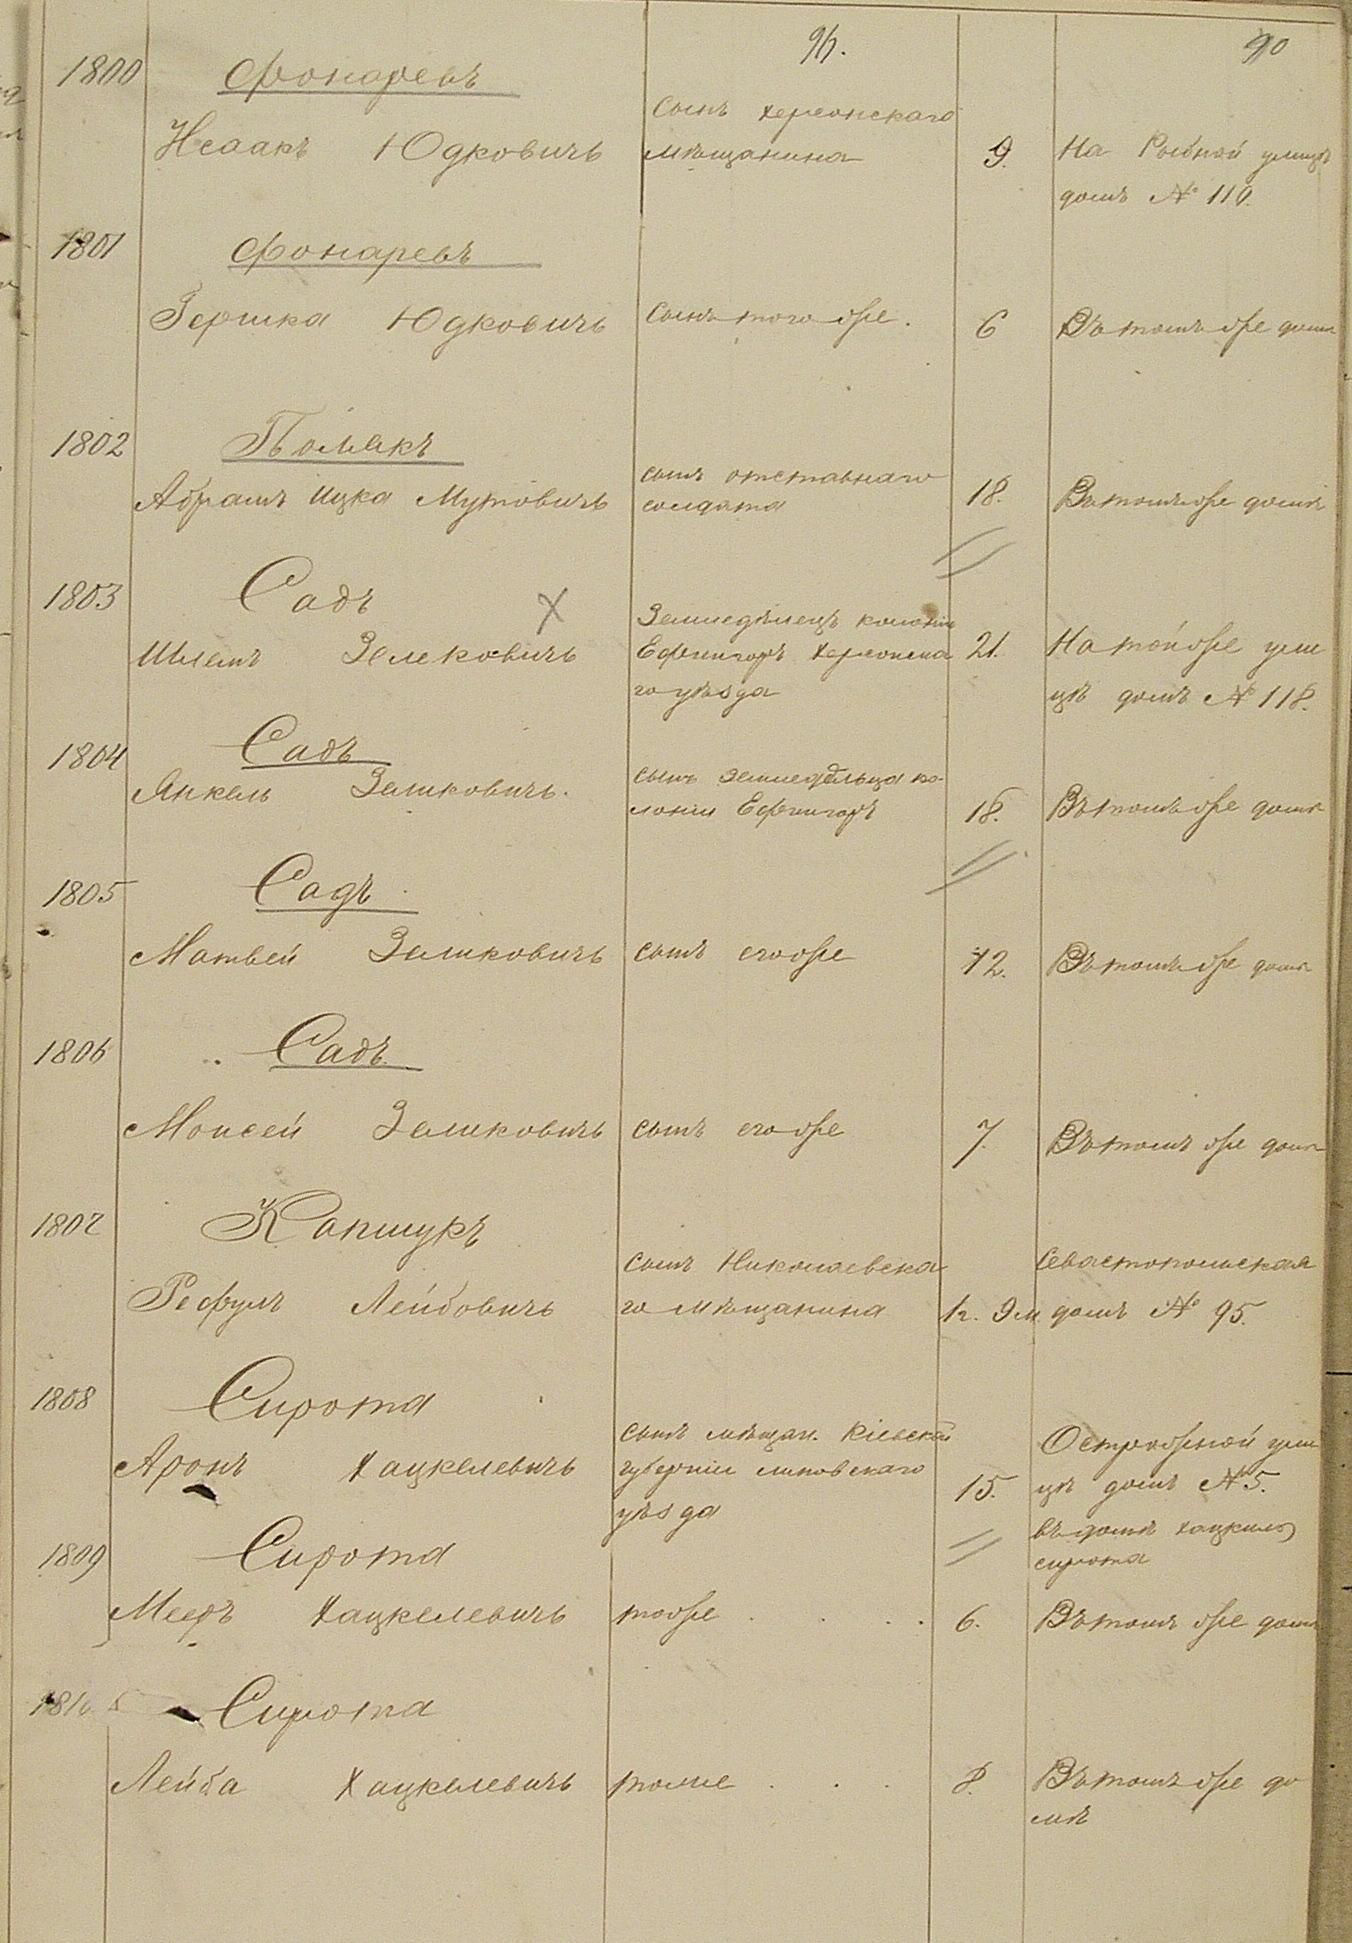 96.
90
1800 Фонаревъ
Исаакъ Юдковичъ
сынъ херсонскаго
мѣщанина
9.
На Рыбной улицѣ
домъ № 110.
1801 Фонаревъ
Гершка Юдковичъ
сынъ того же.
6
Въ томъ же домѣ
1802
Абрамъ Ицка Мутовичъ
сынъ отставнаго
солдата
18.
Въ томъ же домѣ
1803 Садъ
Шлемъ Зелековичъ
Земледѣлецъ колоніи
Ефингаръ Херсонска
го уѣзда
21.
На той же ули
цѣ домъ № 118.
1804 Садъ
Янкель Зеликовичъ.
сынъ земледѣльца ко-
лоніи Ефингаръ
18.
Въ томъ же домѣ
1805 Садъ
Матвей Зеликовичъ
сынъ его же
12.
Въ томъ же домѣ
1806 Садъ
Моисей Зелековичъ
сынъ его же
7.
Въ томъ же домѣ
1807 Капшукъ
Рефулъ Лейбовичъ
сынъ Николаевска
го мѣщанина
1 г. 9 м
Севастопольская
домъ № 95.
1808 Сирота
Аронъ Хацкелевичъ
сынъ мѣщан. Кіевской
губерніи липовскаго
уѣзда
15.
Острожной ули
цѣ домъ № 5.
въ домѣ Хацкиля
сирота
1809 Сирота
Мееръ Хацкелевичъ
тоже . . . .
6.
Въ томъ же домѣ
1810 Сирота
Лейба Хацкелевичъ
тоже . . .
8.
Въ томъ же до
мѣ